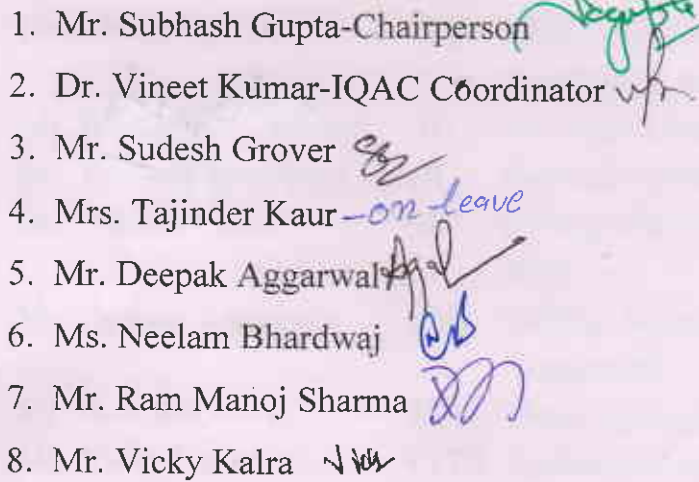 1. Mr. Subhash Gupta-Chairperson
2. Dr. Vineet Kumar-IQAC Coordinator
3. Mr. Sudesh Grover
4. Mrs. Tajinder Kaur -on leave
5. Mr. Deepak Aggarwal
6. Ms. Neelam Bhardwaj
7. Mr. Ram Manoj Sharma
8. Mr. Vicky Kalra